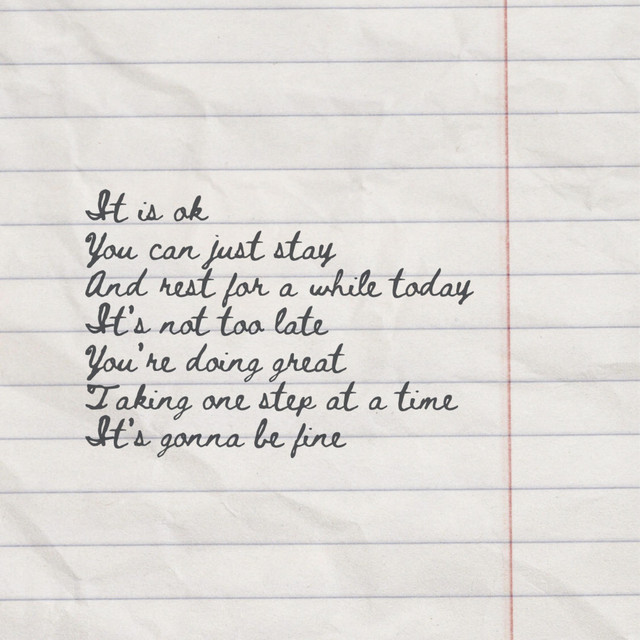 It is ok
You can just stay
And rest for a while today
It's not too late
You're doing great
Taking one step at a time
It's gonna be fine